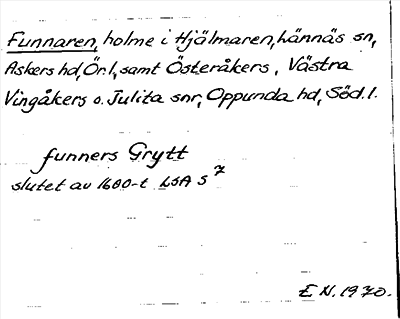 Funnaren, holme i Hjälmaren, Lännäs sn,
Askers hd, Ör. l., samt Österåkers, Västra
Vingåkers o. Julita snr, Oppunda hd, Söd. l.
funners Grytt
slutet av 1600-t LSA S 7
E N. 1970.